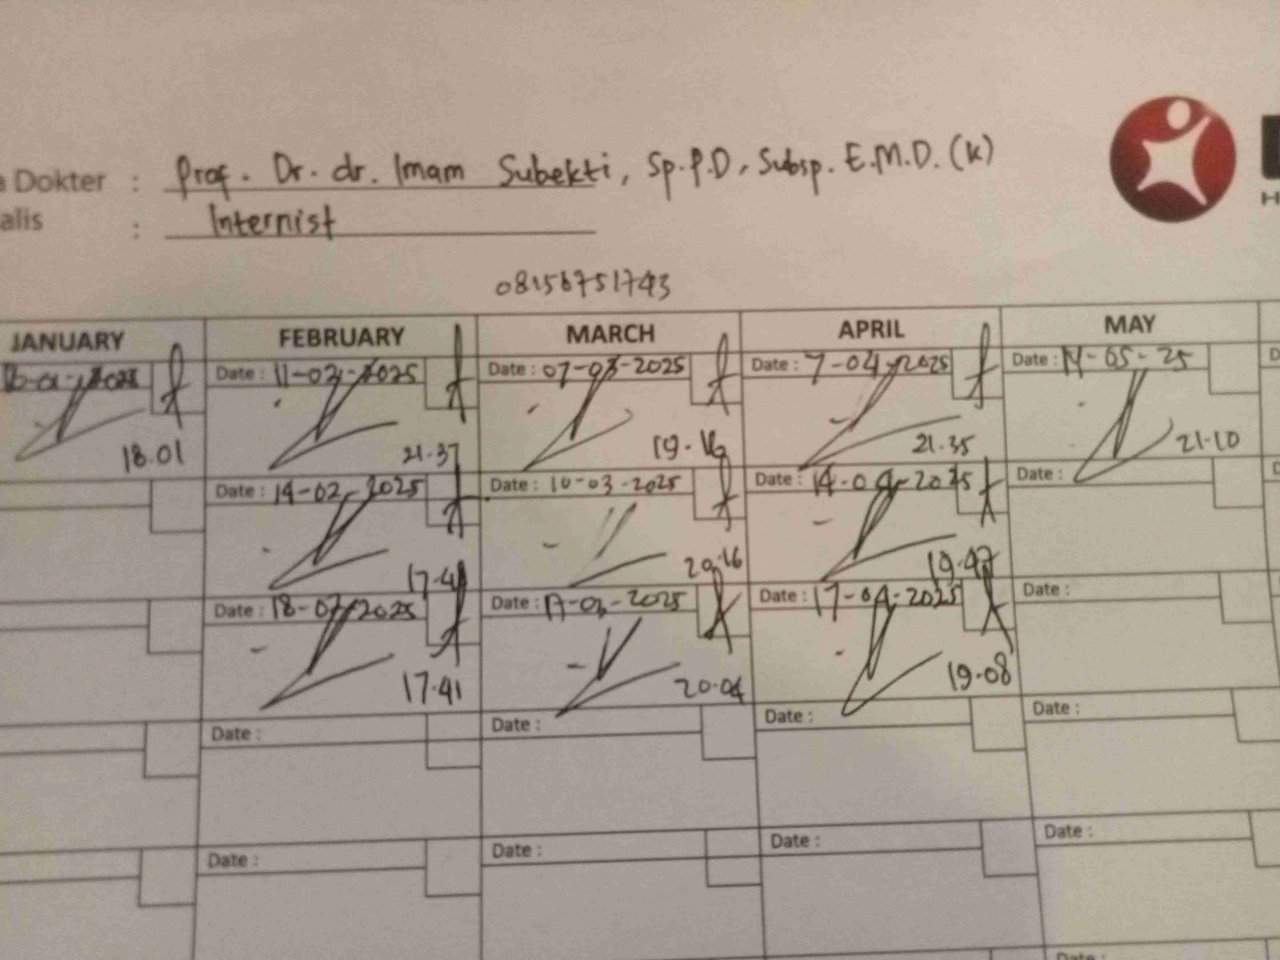 Dokter : Prof. Dr. dr. Imam Subekti, Sp.P.D, Subsp. E.M.D. (K)
alis : Internist
08156751743
JANUARY FEBRUARY MARCH APRIL MAY
Date : 11-02-2025 Date : 07-03-2025 Date : 7-04-2025 Date : 14-05-25
18.01 21.37 19.16 21.35 21.10
Date : 14-02-2025 Date : 10-03-2025 Date : 14-04-2025 Date :
20.16 19.47
Date : 18-02-2025 Date : 17-03-2025 Date : 17-04-2025 Date :
17.41 20.04 19.08
Date : Date : Date : Date :
Date : Date : Date : Date :
Date :